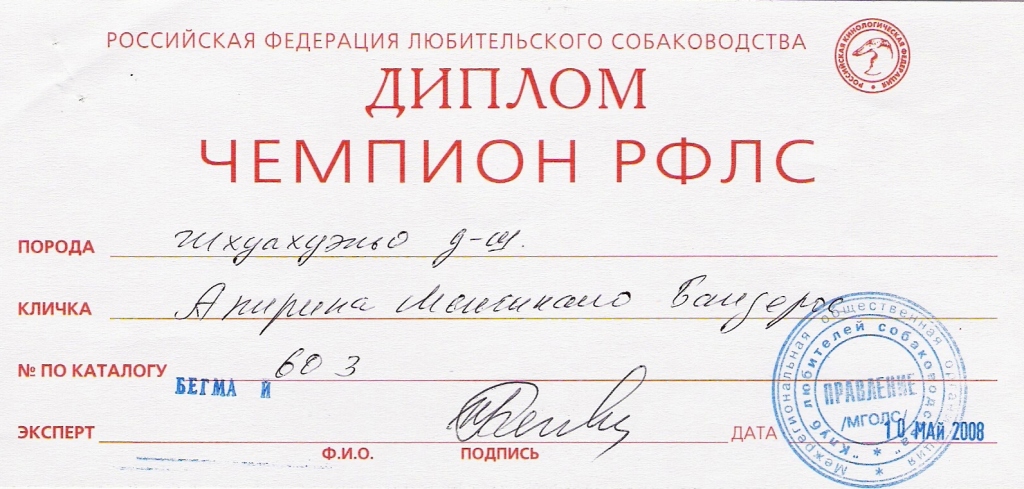 РОССИЙСКАЯ ФЕДЕРАЦИЯ ЛЮБИТЕЛЬСКОГО СОБАКОВОДСТВА
РОССИЙСКАЯ КИНОЛОГИЧЕСКАЯ ФЕДЕРАЦИЯ
ДИПЛОМ
ЧЕМПИОН РФЛС
ПОРОДА д-ш.
КЛИЧКА Бандерос
№ ПО КАТАЛОГУ 603
БЕГМА Й
ЭКСПЕРТ
Ф.И.О. ПОДПИСЬ
ДАТА 10 МАЙ 2008
Межрегиональная общественная организация
"Клуб любителей собаководства"
ПРАВЛЕНИЕ
/МГОЛС/